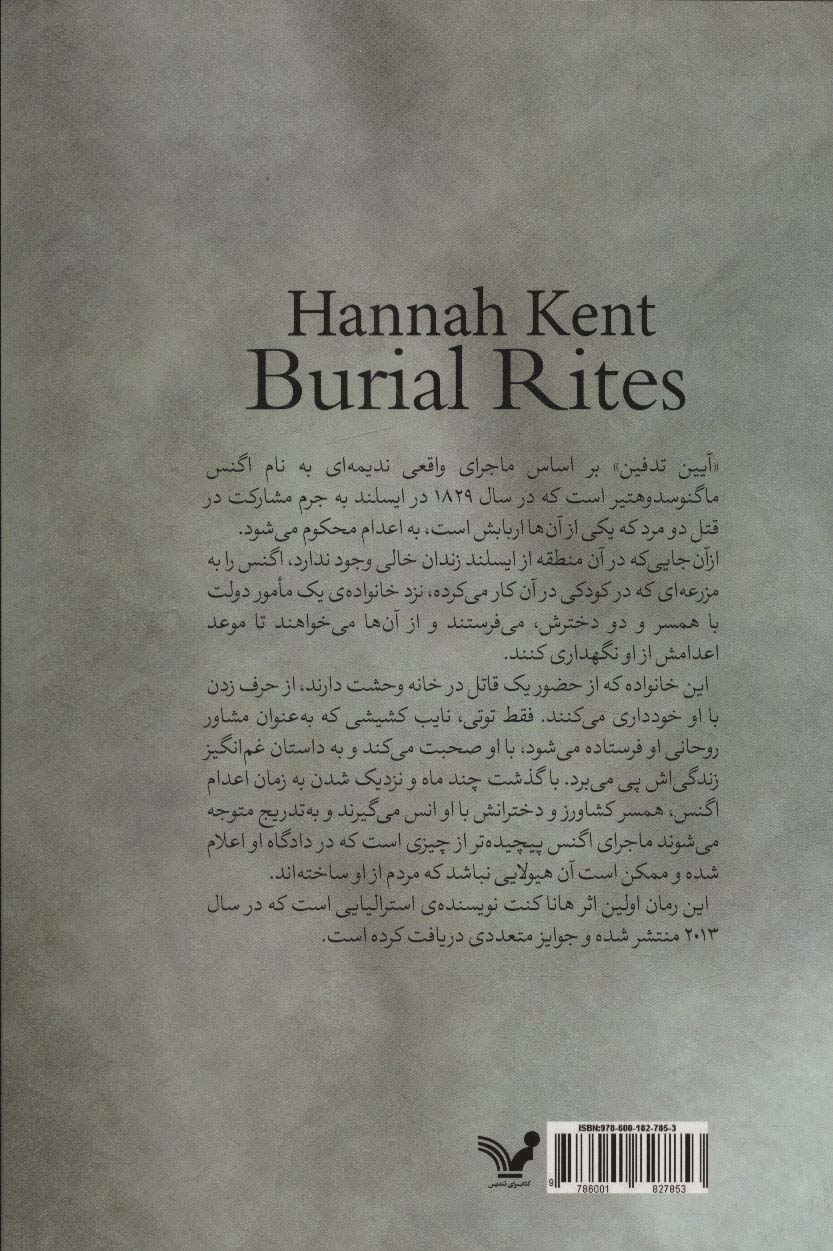 Hannah Kent
Burial Rites
«آیین تدفین» بر اساس ماجرای واقعی ندیمه‌ای به نام اگنس
ماگنوسدوهتیر است که در سال ۱۸۲۹ در ایسلند به جرم مشارکت در
قتل دو مرد که یکی از آن‌ها اربابش است، به اعدام محکوم می‌شود.
ازآن‌جایی‌که در آن منطقه از ایسلند زندان خالی وجود ندارد، اگنس را به
مزرعه‌ای که در کودکی در آن کار می‌کرده، نزد خانواده‌ی یک مأمور دولت
با همسر و دو دخترش، می‌فرستند و از آن‌ها می‌خواهند تا موعد
اعدامش از او نگهداری کنند.
این خانواده که از حضور یک قاتل در خانه وحشت دارند، از حرف زدن
با او خودداری می‌کنند. فقط توتی، نایب کشیشی که به‌عنوان مشاور
روحانی او فرستاده می‌شود، با او صحبت می‌کند و به داستان غم‌انگیز
زندگی‌اش پی می‌برد. با گذشت چند ماه و نزدیک شدن به زمان اعدام
اگنس، همسر کشاورز و دخترانش با او انس می‌گیرند و به‌تدریج متوجه
می‌شوند ماجرای اگنس پیچیده‌تر از چیزی است که در دادگاه او اعلام
شده و ممکن است آن هیولایی نباشد که مردم از او ساخته‌اند.
این رمان اولین اثر هانا کنت نویسنده‌ی استرالیایی است که در سال
۲۰۱۳ منتشر شده و جوایز متعددی دریافت کرده است.
ISBN:978-600-182-785-3
9 786001 827853
کتابسرای تندیس